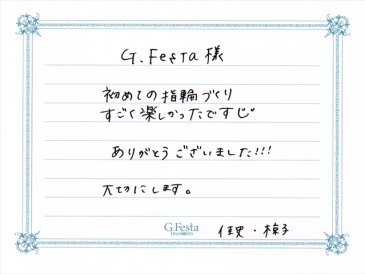 G.Festa 様
初めての指輪づくり
すごく楽しかったですじ
ありがとうございました!!!
大切にします。
G.Festa
DIAMOND
佳史・椋子